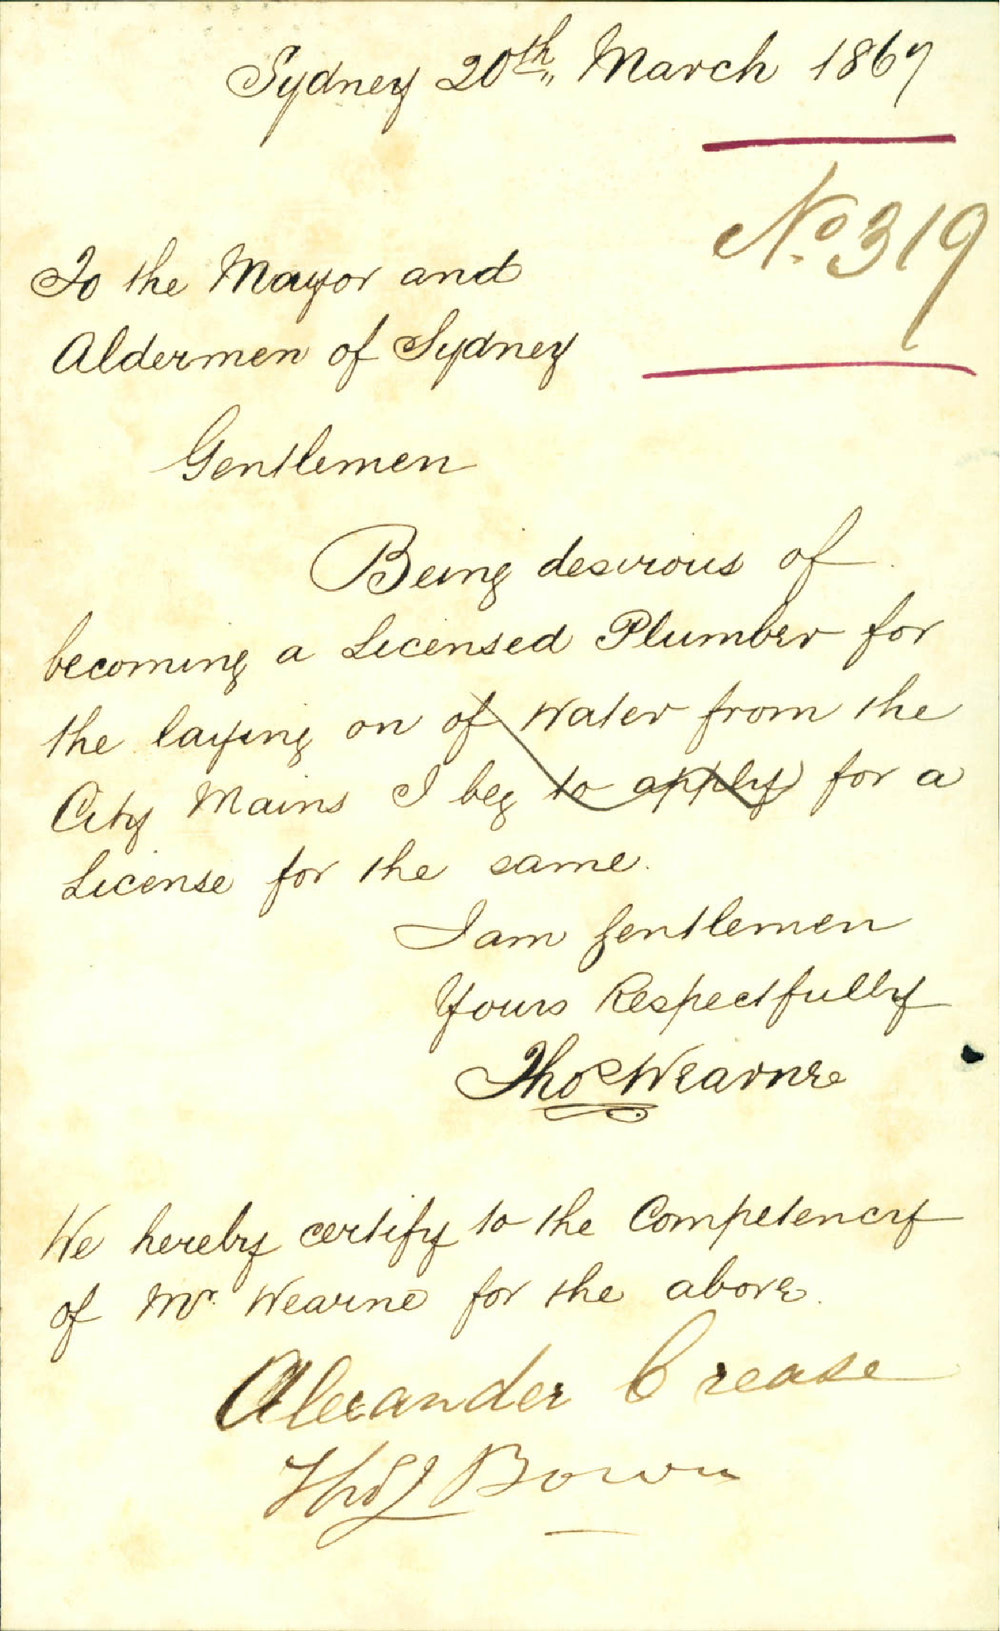 Sydney 20th March 1867
No. 319
To the Mayor and
Aldermen of Sydney
Gentlemen
Being desirous of
becoming a Licensed Plumber for
the laying on of Water from the
City Mains I beg to apply for a
License for the same.
I am Gentlemen
Yours Respectfully
Thos Wearne
We hereby certify to the Competency
of Mr. Wearne for the above.
Alexander Crease
Thos J Bown